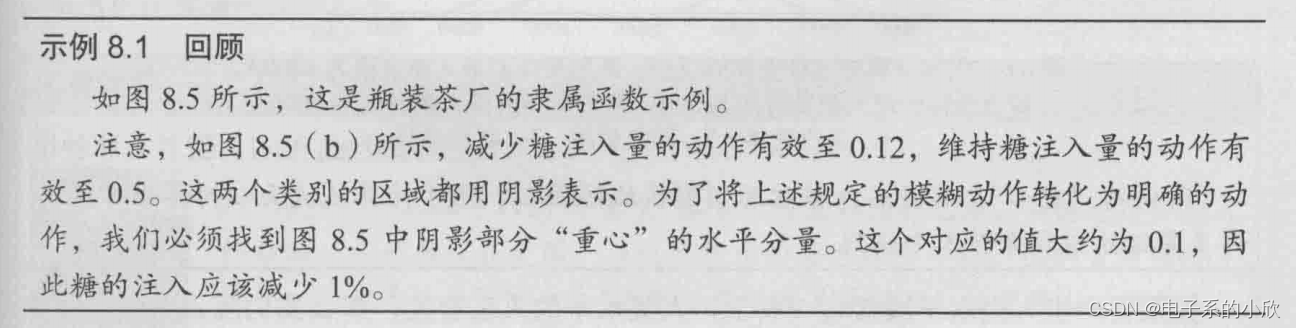 示例 8.1 回顾
如图 8.5 所示，这是瓶装茶厂的隶属函数示例。
注意，如图 8.5（b）所示，减少糖注入量的动作有效至 0.12，维持糖注入量的动作有
效至 0.5。这两个类别的区域都用阴影表示。为了将上述规定的模糊动作转化为明确的动
作，我们必须找到图 8.5 中阴影部分“重心”的水平分量。这个对应的值大约为 0.1，因
此糖的注入应该减少 1%。
CSDN @电子系的小欣